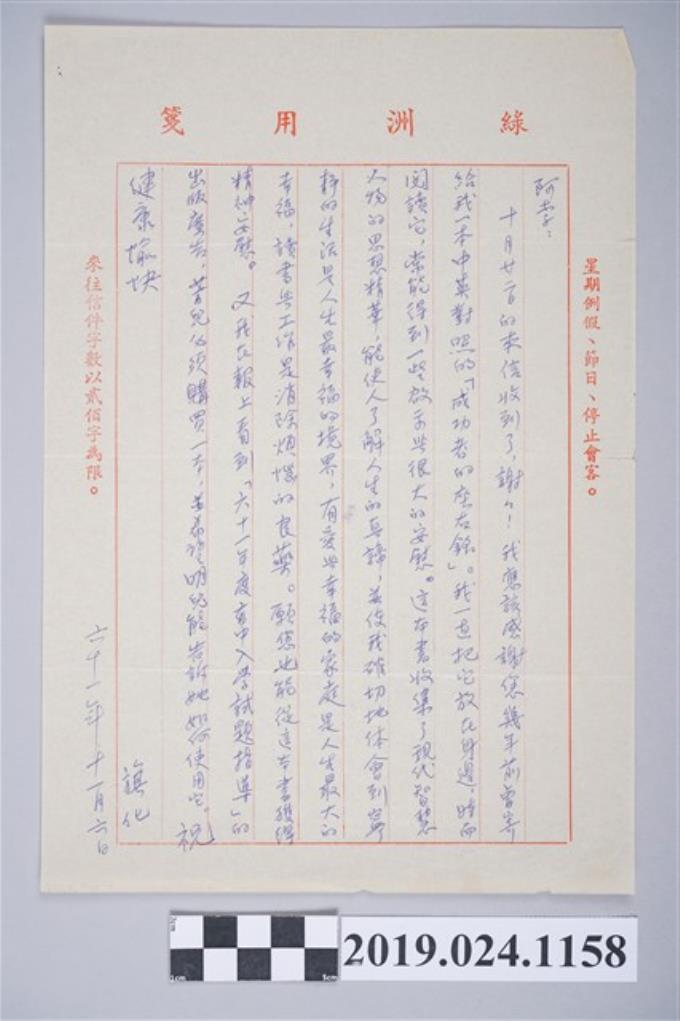 綠洲用箋
星期例假、節日、停止會客。
阿李：
十月廿二日的來信收到了，謝々！我應該感謝您幾年前曾寄
給我一本中英對照的「成功者的座右銘」。我一直把它放在身邊，時而
閱讀它，常能得到一些啟示與很大的安慰。這本書收集了現代智慧
人物的思想精華，能使人了解人生的真諦，並使我確切地体會到寧
靜的生活是人生最幸福的境界，有愛與幸福的家庭是人生最大的
幸福，讀書與工作是消除煩惱的良藥。願您也能從這本書獲得
精神安慰。又我在報上看到「六十一年度高中入學試題指導」的
出版廣告，芳兒必須購買一本，並希望明兒能告訴她如何使用它。祝
健康愉快
旗化
六十一年十一月六日
來往信件字數以貳佰字為限。
2019.024.1158